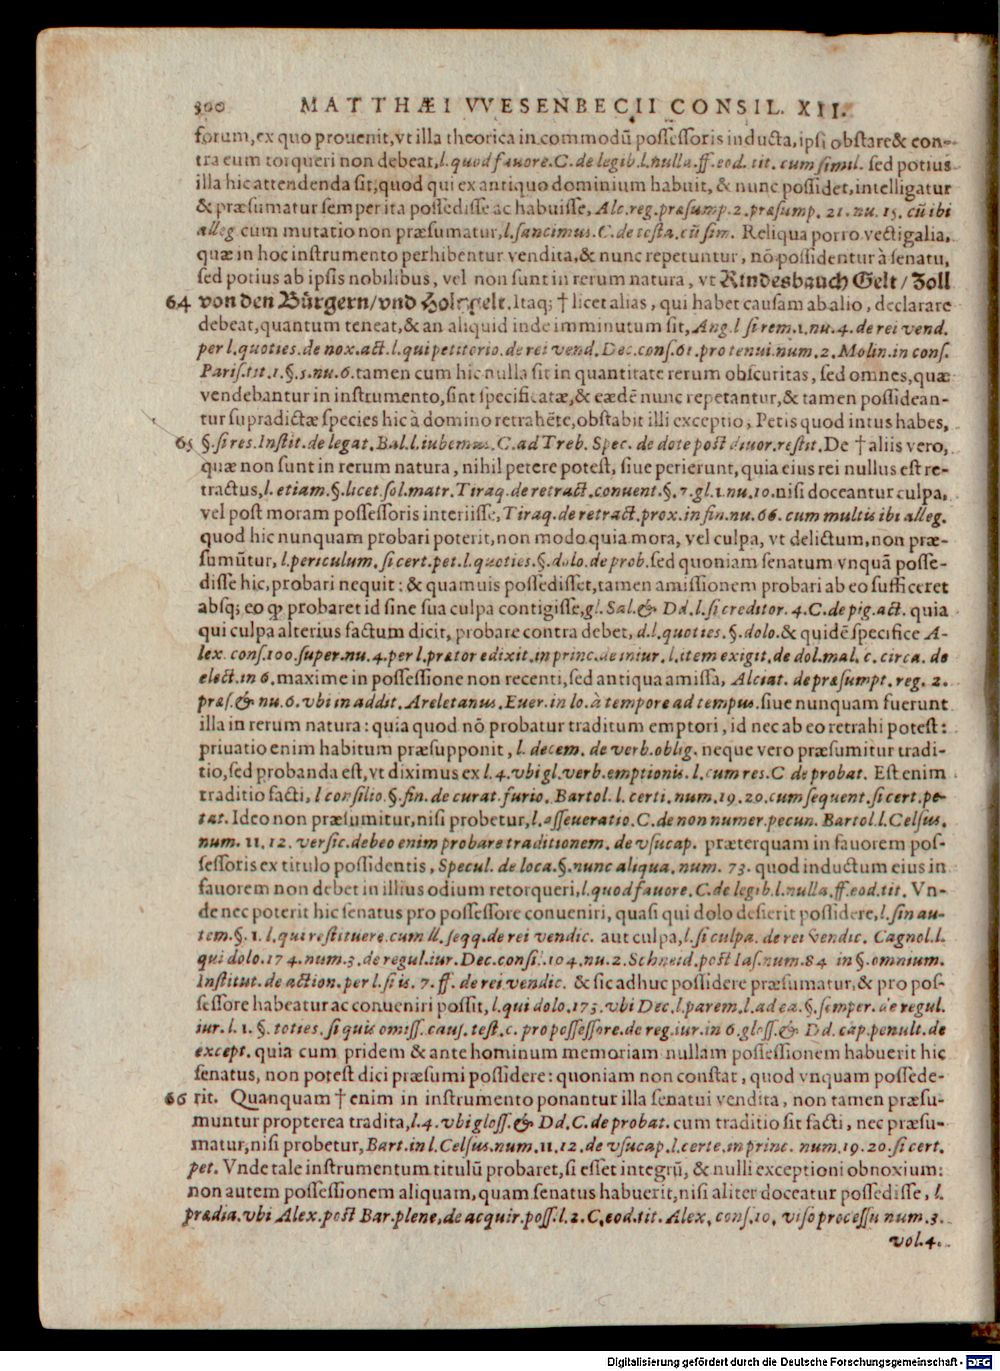 300 MATTHÆI VVESENBECII CONSIL. XII.
forum, ex quo prouenit, vt illa theorica in commodũ possessoris inducta, ipsi obstare & con-
tra eum torqueri non debeat, l. quod fauore. C. de legib. l. nulla. ff. eod. tit. cum simil. sed potius
illa hic attendenda sit, quod qui ex antiquo dominium habuit, & nunc possidet, intelligatur
& præsumatur semper ita possedisse ac habuisse, Alc. reg. præsump. 2. præsump. 21. nu. 15. cũ ibi
alleg cum mutatio non præsumatur, l. sancimus. C. de testa. cũ sim. Reliqua porro vectigalia,
quæ in hoc instrumento perhibentur vendita, & nunc repetuntur, nõ possidentur à senatu,
sed potius ab ipsis nobilibus, vel non sunt in rerum natura, vt Rindesbauch Gelt / Zoll
64 von den Bürgern / vnd Holtzgelt. Itaq; † licet alias, qui habet causam ab alio, declarare
debeat, quantum teneat, & an aliquid inde imminutum sit, Ang. l si rem. 1. nu. 4. de rei vend.
per l. quoties. de nox. act. l. qui petitorio. de rei vend. Dec. cons. 61. pro tenui. num. 2. Molin. in cons.
Paris. tit. 1. §. 5. nu. 6. tamen cum hic nulla sit in quantitate rerum obscuritas, sed omnes, quæ
vendebantur in instrumento, sint specificatæ, & eædē nunc repetantur, & tamen possidean-
tur supradictæ species hic à domino retrahēte, obstabit illi exceptio, Petis quod intus habes,
65 §. si res. Instit. de legat. Bal. l. iubemus. C. ad Treb. Spec. de dote post diuor. restit. De † aliis vero,
quæ non sunt in rerum natura, nihil petere potest, siue perierunt, quia eius rei nullus est re-
tractus, l. etiam. §. licet. sol. matr. Tiraq. de retract. conuent. §. 7. gl. 1. nu. 10. nisi doceantur culpa,
vel post moram possessoris interiisse, Tiraq. de retract. prox. in fin. nu. 66. cum multis ibi alleg.
quod hic nunquam probari poterit, non modo quia mora, vel culpa, vt delictum, non præ-
sumũtur, l. periculum. si cert. pet. l. quoties. §. dolo. de prob. sed quoniam senatum vnquã posse-
disse hic, probari nequit: & quamuis possedisset, tamen amissionem probari ab eo sufficeret
absq; eo qp probaret id sine sua culpa contigisse, gl. Sal. & Dd. l. si creditor. 4. C. de pig. act. quia
qui culpa alterius factum dicit, probare contra debet, d. l. quoties. §. dolo. & quidē specifice A-
lex. cons. 100. super. nu. 4. per l. prætor edixit. in princ. de iniur. l. item exigit. de dol. mal. c. circa. de
elect. in 6. maxime in possessione non recenti, sed antiqua amissa, Alciat. de præsumpt. reg. 2.
præs. & nu. 6. vbi in addit. Areletanus. Euer. in lo. à tempore ad tempus. siue nunquam fuerunt
illa in rerum natura: quia quod nõ probatur traditum emptori, id nec ab eo retrahi potest:
priuatio enim habitum præsupponit, l. decem. de verb. oblig. neque vero præsumitur tradi-
tio, sed probanda est, vt diximus ex l. 4. vbi gl. verb. emptionis. l. cum res. C de probat. Est enim
traditio facti, l consilio. §. fin. de curat. furio. Bartol. l. certi. num. 19. 20. cum sequent. si cert. pe-
tat. Ideo non præsumitur, nisi probetur, l. asseueratio. C. de non numer. pecun. Bartol l. Celsus.
num. 11. 12. versic. debeo enim probare traditionem. de vsucap. præterquam in fauorem pos-
sessoris ex titulo possidentis, Specul. de loca. §. nunc aliqua. num. 73. quod inductum eius in
fauorem non debet in illius odium retorqueri, l. quod fauore. C. de legib. l. nulla. ff. eod. tit. Vn-
de nec poterit hic senatus pro possessore conueniri, quasi qui dolo desierit possidere, l. sin au-
tem. §. 1. l. qui restituere. cum ll. seqq. de rei vendic. aut culpa, l. si culpa. de rei vendic. Cagnol. l.
qui dolo. 174. num. 3. de regul. iur. Dec. consi. 104. nu. 2. Schneid. post Ias. num. 84 in §. omnium.
Institut. de action. per l. si is. 7. ff. de rei vendic. & sic adhuc possidere præsumatur, & pro pos-
sessore habeatur ac conueniri possit, l. qui dolo. 173. vbi Dec. l. parem. l. ad ea. §. semper. de regul.
iur. l. 1. §. toties. si quis omiss. caus. test. c. pro possessore. de reg. iur. in 6. gloss. & Dd. cap. penult. de
except. quia cum pridem & ante hominum memoriam nullam possessionem habuerit hic
senatus, non potest dici præsumi possidere: quoniam non constat, quod vnquam possede-
66 rit. Quanquam † enim in instrumento ponantur illa senatui vendita, non tamen præsu-
muntur propterea tradita, l. 4. vbi gloss. & Dd. C. de probat. cum traditio sit facti, nec præsu-
matur, nisi probetur, Bart. in l. Celsus. num. 11. 12. de vsucap. l. certe. in princ. num. 19. 20. si cert.
pet. Vnde tale instrumentum titulũ probaret, si esset integrũ, & nulli exceptioni obnoxium:
non autem possessionem aliquam, quam senatus habuerit, nisi aliter doceatur possedisse, l.
prædia. vbi Alex. post Bar. plene, de acquir. poss. l. 2. C. eod. tit. Alex. cons. 10. viso processu num. 3.
vol. 4.
Digitalisierung gefördert durch die Deutsche Forschungsgemeinschaft - DFG